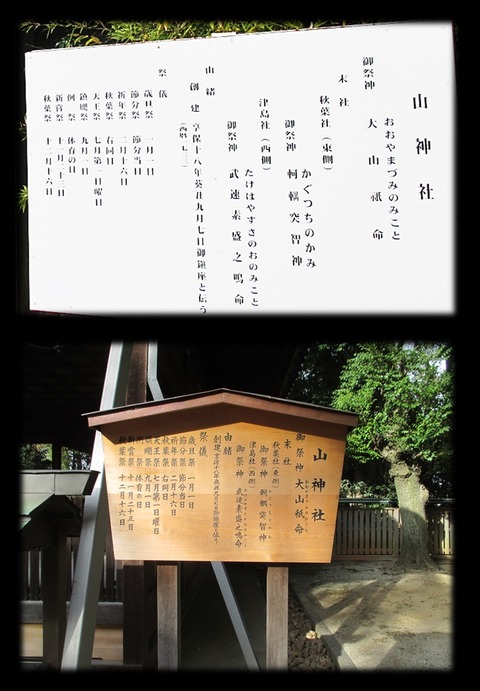 山神社
おおやまづみのみこと
御祭神 大山祇命
末社
秋葉社(東側)
かぐつちのかみ
御祭神 軻遇突智神
津島社(西側)
たけはやすさのおのみこと
御祭神 武速素盛之鳴命
由緒
創建 享保十八年癸丑九月七日御鎮座と伝う
祭儀
歳旦祭 一月一日
節分祭 節分当日
祈年祭 二月十六日
秋葉祭 右同日
天王祭 七月第一日曜日
鎮座祭 九月一日
例祭 体育の日
新嘗祭 十一月二十三日
秋葉祭 十二月十六日
山神社
御祭神 大山祇命
末社
秋葉社(東側)
御祭神 軻遇突智神
津島社(西側)
御祭神 武速素盛之鳴命
由緒
創建享保十八年癸丑九月七日御鎮座と伝う
祭儀
歳旦祭 一月一日
節分祭 節分当日
祈年祭 二月十六日
秋葉祭 右同日
天王祭 七月第一日曜日
鎮座祭 九月一日
例祭 体育の日
新嘗祭 十一月二十三日
秋葉祭 十二月十六日